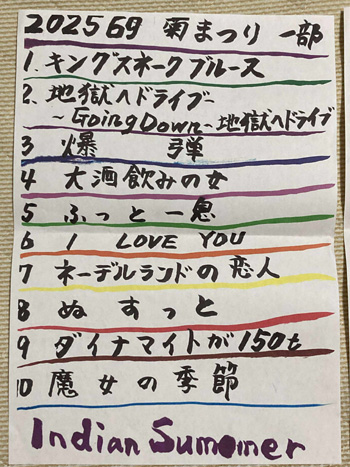 2025 69 菊まつり 一部
1. キングスネークブルース
2. 地獄へドライブ-
~Going Down~地獄へドライブ
3 爆 弾
4 大酒飲みの女
5 ふっと一息
6 I LOVE YOU
7 ネーデルランドの恋人
8 ぬすっと
9 ダイナマイトが150t
10 魔女の季節
Indian Summer